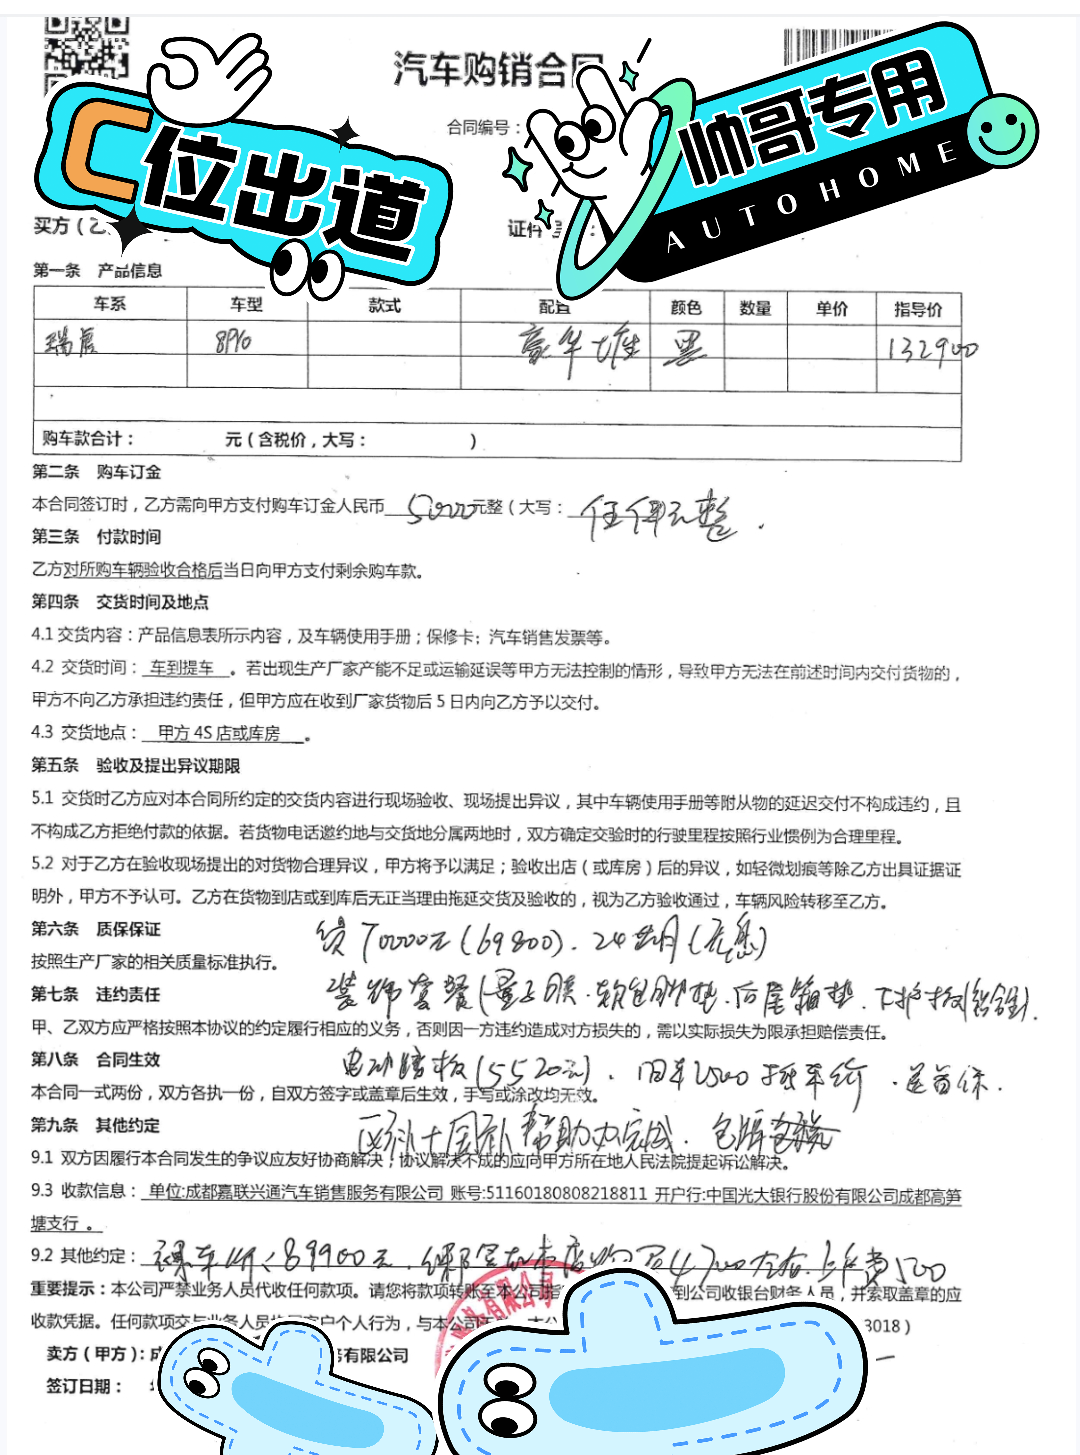 汽车购销合同
合同编号：
C位出道
帅哥专用
AUTOHOME
买方（乙
证件
第一条 产品信息
车系 车型 款式 配置 颜色 数量 单价 指导价
瑞虎 8PRO 豪华 七座 黑 132900
购车款合计： 元（含税价，大写： ）
第二条 购车订金
本合同签订时，乙方需向甲方支付购车订金人民币 5000 元整（大写： 伍仟元整 .
第三条 付款时间
乙方对所购车辆验收合格后当日向甲方支付剩余购车款。
第四条 交货时间及地点
4.1 交货内容：产品信息表所示内容，及车辆使用手册；保修卡；汽车销售发票等。
4.2 交货时间： 车到提车 。若出现生产厂家产能不足或运输延误等甲方无法控制的情形，导致甲方无法在前述时间内交付货物的，
甲方不向乙方承担违约责任，但甲方应在收到厂家货物后 5 日内向乙方予以交付。
4.3 交货地点： 甲方 4S 店或库房 。
第五条 验收及提出异议期限
5.1 交货时乙方应对本合同所约定的交货内容进行现场验收、现场提出异议，其中车辆使用手册等附从物的延迟交付不构成违约，且
不构成乙方拒绝付款的依据。若货物电话邀约地与交货地分属两地时，双方确定交验时的行驶里程按照行业惯例为合理里程。
5.2 对于乙方在验收现场提出的对货物合理异议，甲方将予以满足；验收出店（或库房）后的异议，如轻微划痕等除乙方出具证据证
明外，甲方不予认可。乙方在货物到店或到库后无正当理由拖延交货及验收的，视为乙方验收通过，车辆风险转移至乙方。
第六条 质保保证
贷 70000元（69800）. 24个月（无息）
按照生产厂家的相关质量标准执行。
装饰套餐（量子膜.软包脚垫.后尾箱垫.下护板（铝合金）.
第七条 违约责任
甲、乙双方应严格按照本协议的约定履行相应的义务，否则因一方违约造成对方损失的，需以实际损失为限承担赔偿责任。
第八条 合同生效
电动踏板（5520元）. 旧车2500 抵车价 . 送首保.
本合同一式两份，双方各执一份，自双方签字或盖章后生效，手写或涂改均无效。
第九条 其他约定
区补+国补帮助办完成. 包牌包税
9.1 双方因履行本合同发生的争议应友好协商解决；协议解决不成的应向甲方所在地人民法院提起诉讼解决。
9.3 收款信息： 单位:成都嘉联兴通汽车销售服务有限公司 账号:51160180808218811 开户行:中国光大银行股份有限公司成都高笋
塘支行 。
9.2 其他约定： 裸车价：89900元. 保险在本店购买4700左右. 上牌费500
重要提示：本公司严禁业务人员代收任何款项。请您将款项转账至本公司指 到公司收银台财务人员，并索取盖章的应
收款凭据。任何款项交与业务人员 客户个人行为，与本公司 3018）
有限公司
卖方（甲方）：成 务有限公司
签订日期：